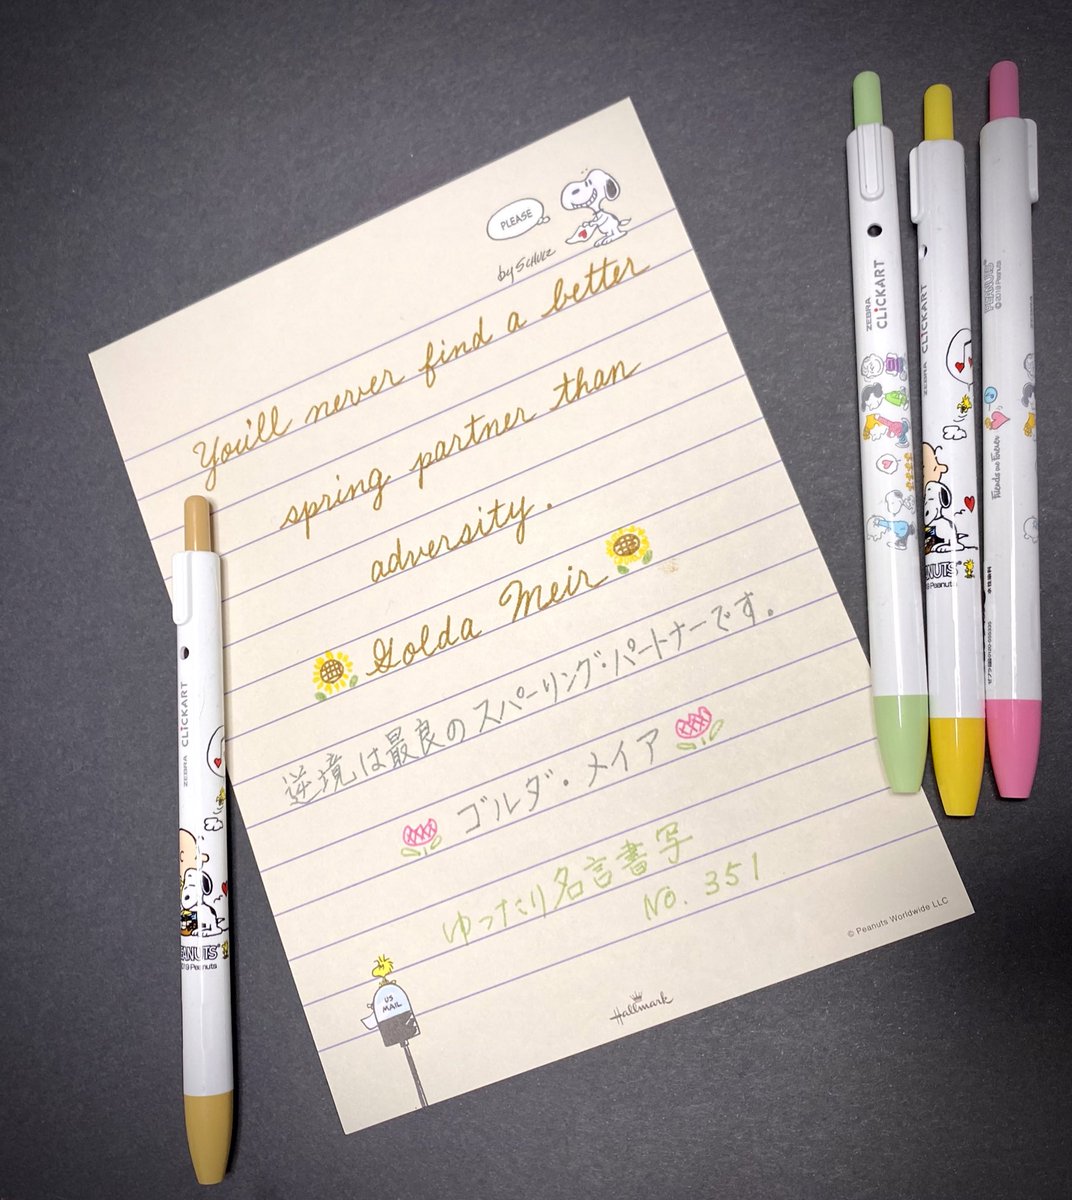 PLEASE
by SCHULZ
You'll never find a better
spring partner than
adversity.
Golda Meir
逆境は最良のスパーリング・パートナーです.
ゴルダ・メイア
ゆったり名言書写
No. 351
© Peanuts Worldwide LLC
US
MAIL
Hallmark
ZEBRA
CLiCKART
PEANUTS
2019 Peanuts
ZEBRA
CLiCKART
ZEBRA CLiCKART
PEANUTS
© 2019 Peanuts
Friends are Forever